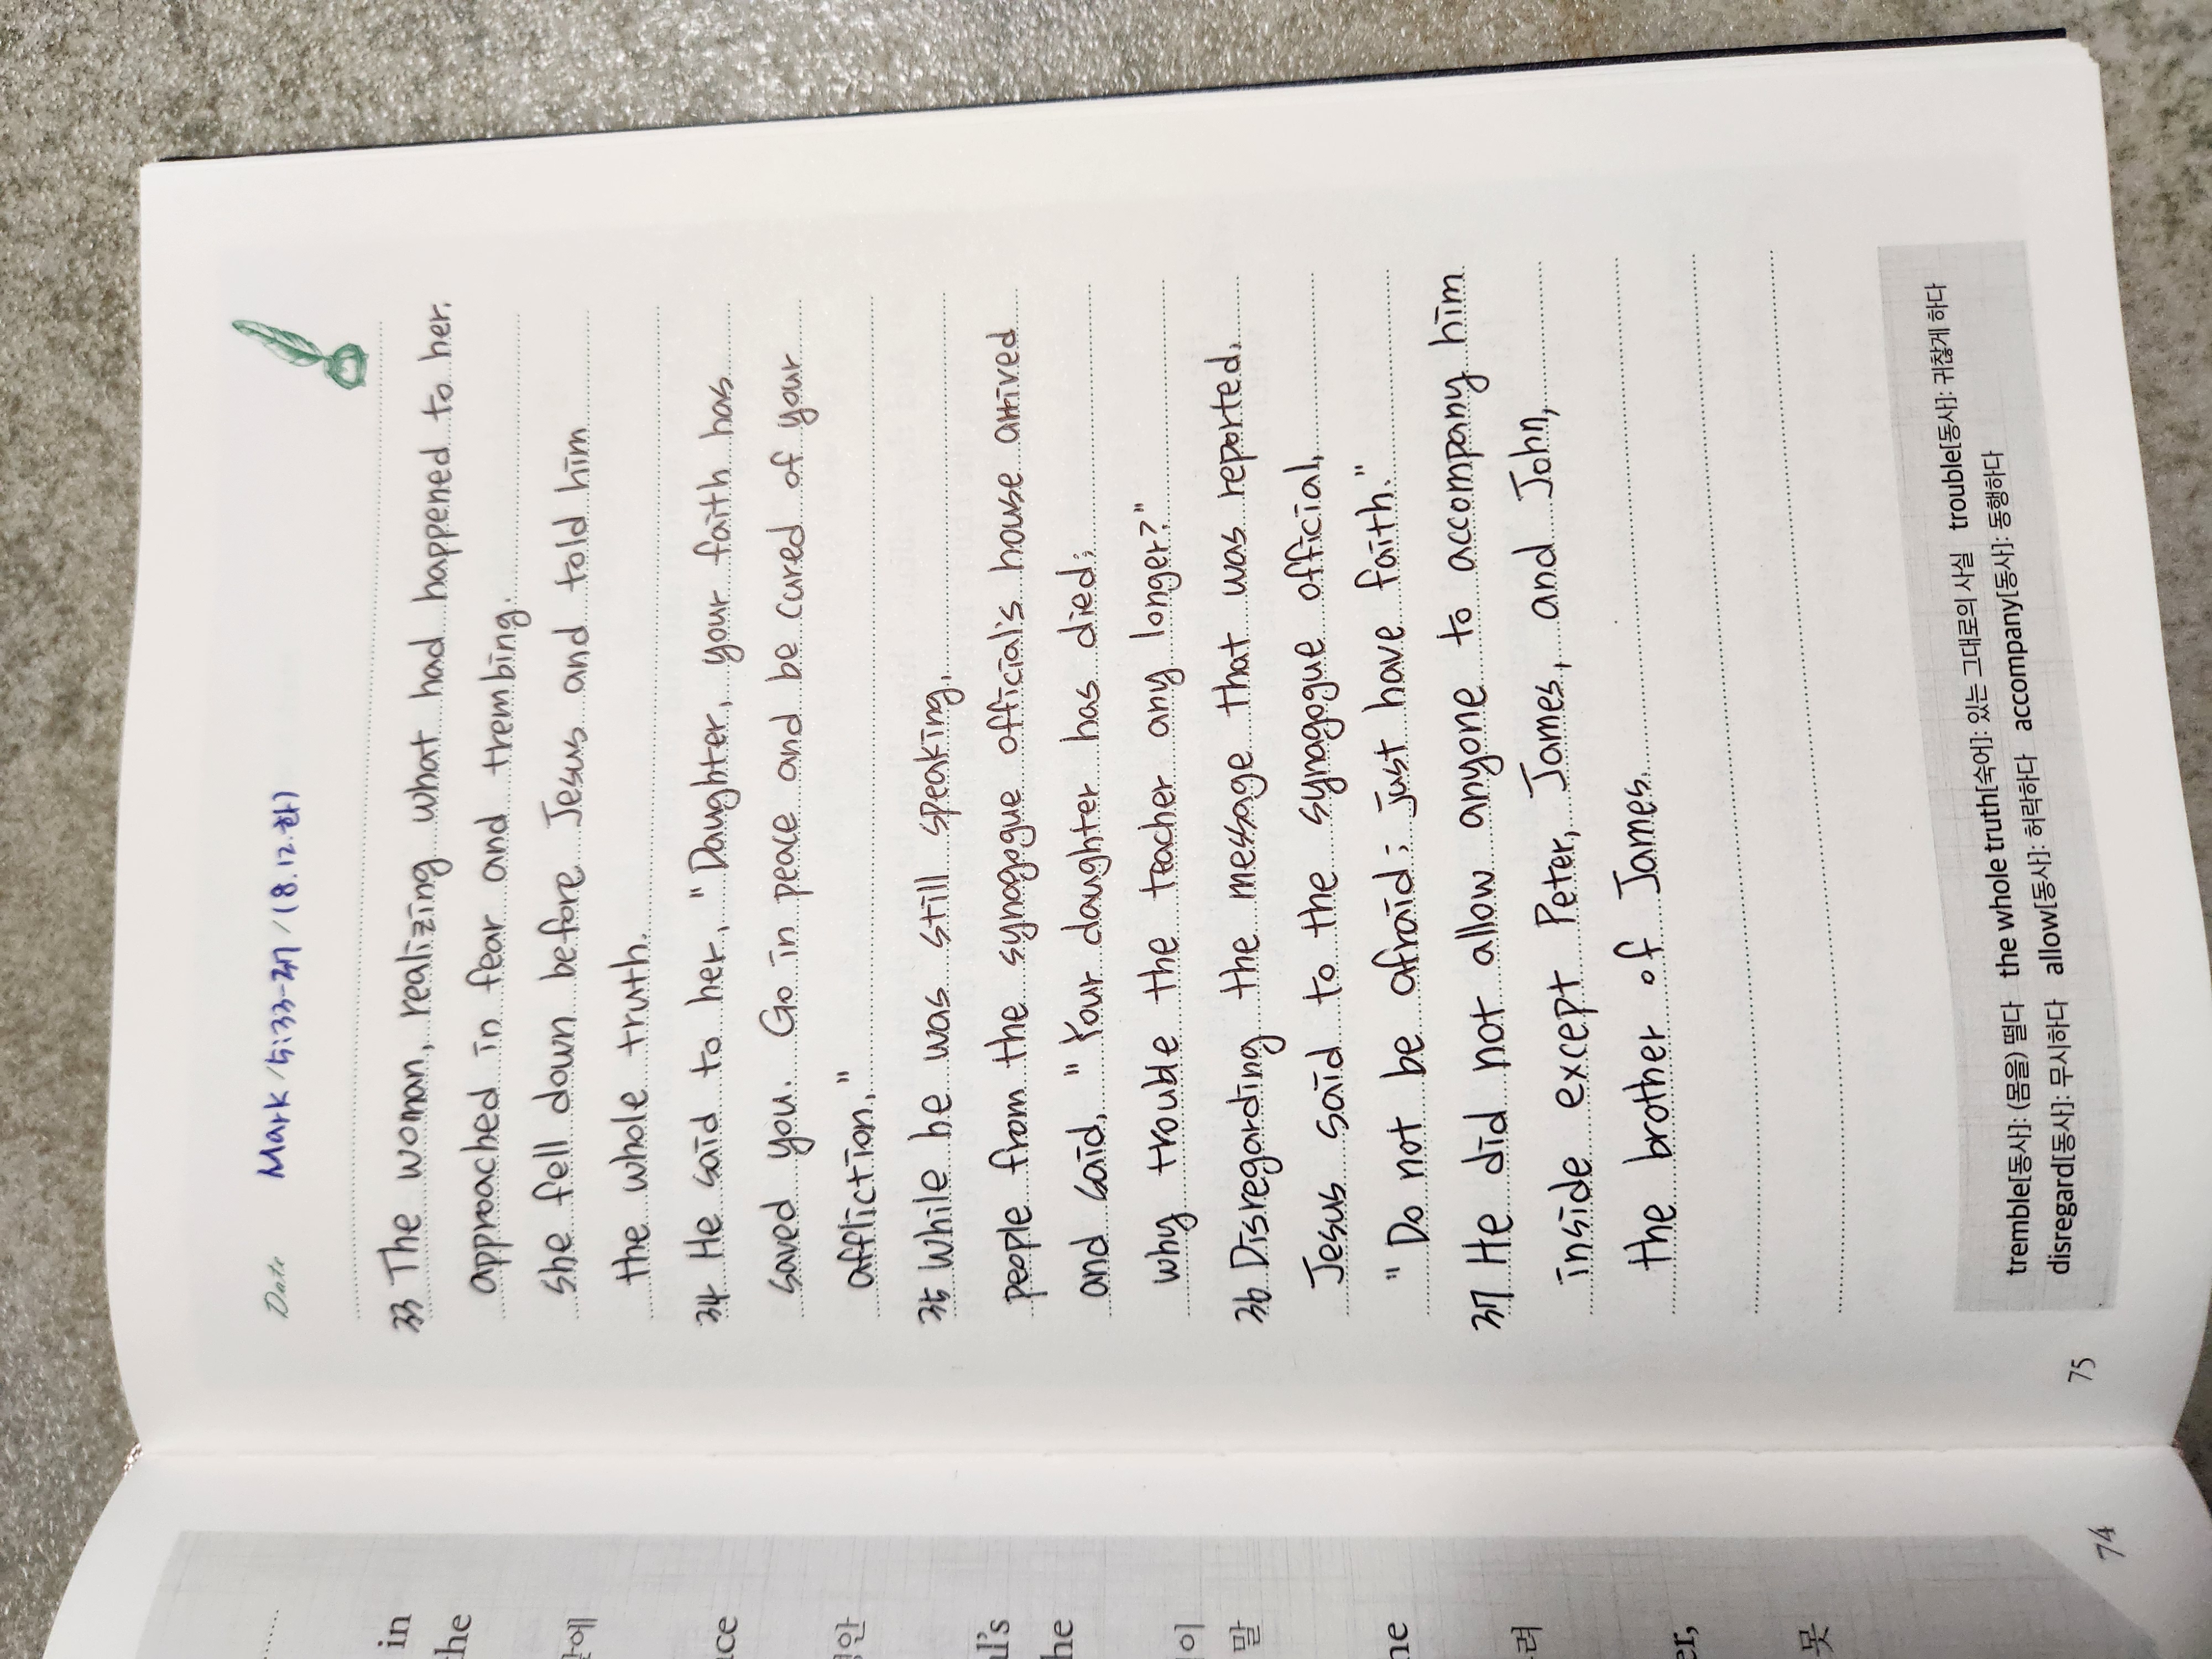 Date Mark / 5:33-37 / (8.12.화)
33 The woman, realizing what had happened to her.
approached in fear and trembing.
she fell down before Jesus and told him
the whole truth.
34 He said to her, "Daughter, your faith has
saved you. Go in peace and be cured of your
affliction."
35 While he was still speaking,
people from the synagogue official's house arrived
and said, "Your daughter has died;
why trouble the teacher any longer?"
36 Disregarding the message that was reported,
Jesus said to the synagogue official,
"Do not be afraid; just have faith."
37 He did not allow anyone to accompany him
inside except Peter, James, and John,
the brother of James.
tremble[동사]: (몸을) 떨다 the whole truth[숙어]: 있는 그대로의 사실 trouble[동사]: 귀찮게 하다
disregard[동사]: 무시하다 allow[동사]: 허락하다 accompany[동사]: 동행하다
75
in
the
ace
al's
he
이
말
he
려
er,
못
74